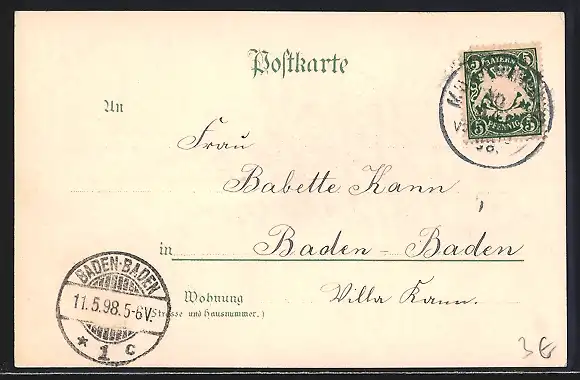 Postkarte
BAYERN
5 5
PFENNIG
An
Frau
Babette Kann
in Baden-Baden
Wohnung Villa Kann.
(Strasse und Hausnummer.)
BADEN-BADEN
11.5.98.5-6V.
* 1 c
3€